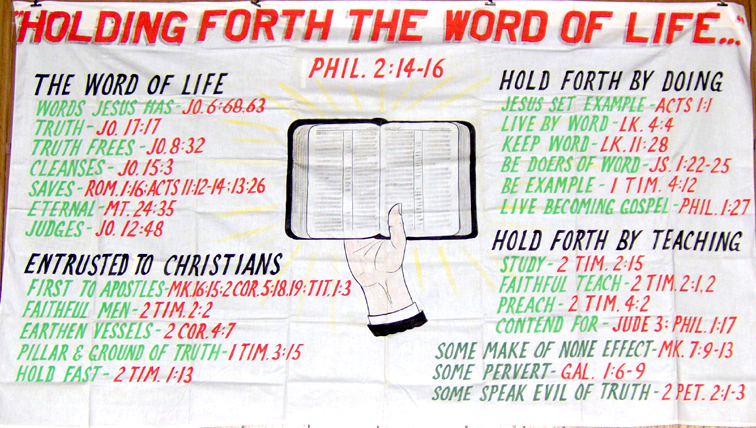 "HOLDING FORTH THE WORD OF LIFE..."
PHIL. 2:14-16
THE WORD OF LIFE
WORDS JESUS HAS - JO. 6:68,63
TRUTH - JO. 17:17
TRUTH FREES - JO. 8:32
CLEANSES - JO. 15:3
SAVES - ROM. 1:16; ACTS 11:12-14; 13:26
ETERNAL - MT. 24:35
JUDGES - JO. 12:48
ENTRUSTED TO CHRISTIANS
FIRST TO APOSTLES - MK.16:15; 2 COR. 5:18,19; TIT. 1:3
FAITHFUL MEN - 2 TIM. 2:2
EARTHEN VESSELS - 2 COR. 4:7
PILLAR & GROUND OF TRUTH - 1 TIM. 3:15
HOLD FAST - 2 TIM. 1:13
HOLD FORTH BY DOING
JESUS SET EXAMPLE - ACTS 1:1
LIVE BY WORD - LK. 4:4
KEEP WORD - LK. 11:28
BE DOERS OF WORD - JS. 1:22-25
BE EXAMPLE - 1 TIM. 4:12
LIVE BECOMING GOSPEL - PHIL. 1:27
HOLD FORTH BY TEACHING
STUDY - 2 TIM. 2:15
FAITHFUL TEACH - 2 TIM. 2:1,2
PREACH - 2 TIM. 4:2
CONTEND FOR - JUDE 3; PHIL. 1:17
SOME MAKE OF NONE EFFECT - MK. 7:9-13
SOME PERVERT - GAL. 1:6-9
SOME SPEAK EVIL OF TRUTH - 2 PET. 2:1-3